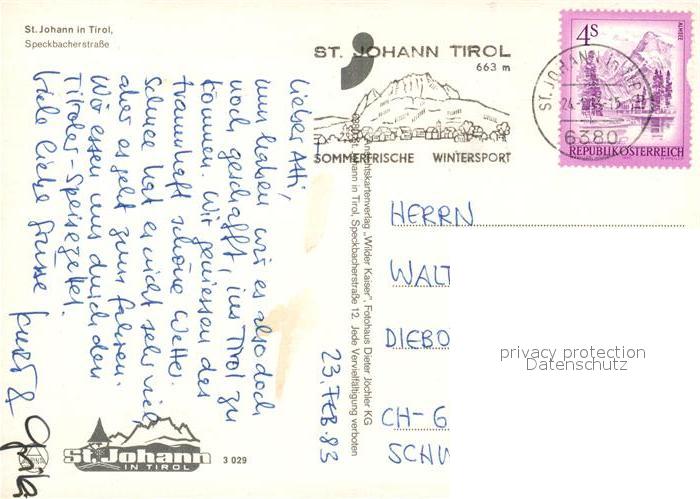 St. Johann in Tirol,
Speckbacherstraße
ST. JOHANN TIROL
663 m
SOMMERFRISCHE WINTERSPORT
4S
ALMSEE
REPUBLIK ÖSTERREICH
ST. JOHANN in TIROL
6380
Lieber Atti,
nun haben wir es also doch
noch geschafft, ins Tirol zu
kommen. Wir geniessen das
traumhaft schöne Wetter.
Schnee hat es nicht sehr viel
aber es geht zum fahren.
Wir essen uns durch den
Tiroler-Speisezettel.
Viele liebe Grüsse
23. FEB. 83
Ansichtskartenverlag „Wilder Kaiser", Fotohaus Dieter Jöchler KG
St. Johann in Tirol, Speckbacherstraße 12. Jede Vervielfältigung verboten
HERRN
WALT
DIEBO
CH-6
SCHW
privacy protection
Datenschutz
St. Johann
IN TIROL
3 029